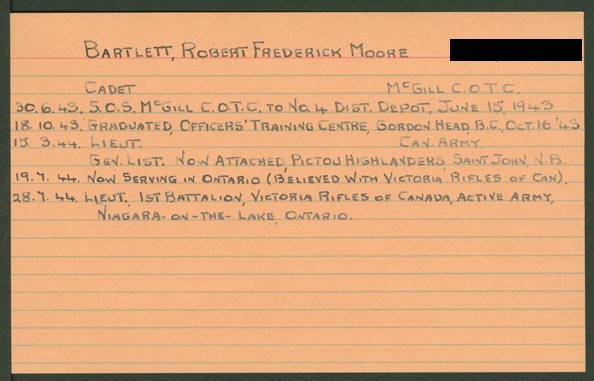 BARTLETT, ROBERT FREDERICK MOORE
CADET McGILL C.O.T.C.
30.6.43. S.O.S. McGILL C.O.T.C. TO No. 4 DIST. DEPOT, JUNE 15, 1943
18.10.43. GRADUATED, OFFICERS' TRAINING CENTRE, GORDON HEAD, B.C., OCT. 16 '43
15.3.44. LIEUT. CAN. ARMY.
GEN. LIST. NOW ATTACHED, PICTOU HIGHLANDERS, SAINT JOHN, N.B.
19.7.44. NOW SERVING IN ONTARIO (BELIEVED WITH VICTORIA RIFLES OF CAN).
28.7.44. LIEUT. 1ST BATTALION, VICTORIA RIFLES OF CANADA, ACTIVE ARMY,
NIAGARA-ON-THE-LAKE, ONTARIO.